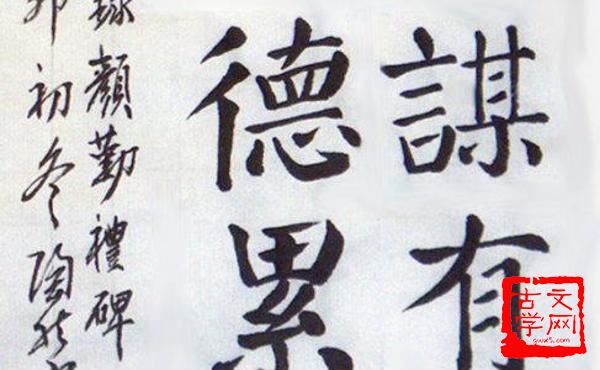 謀有
德累
顏勤禮碑
初冬陶
古文
学网
gwx5.com